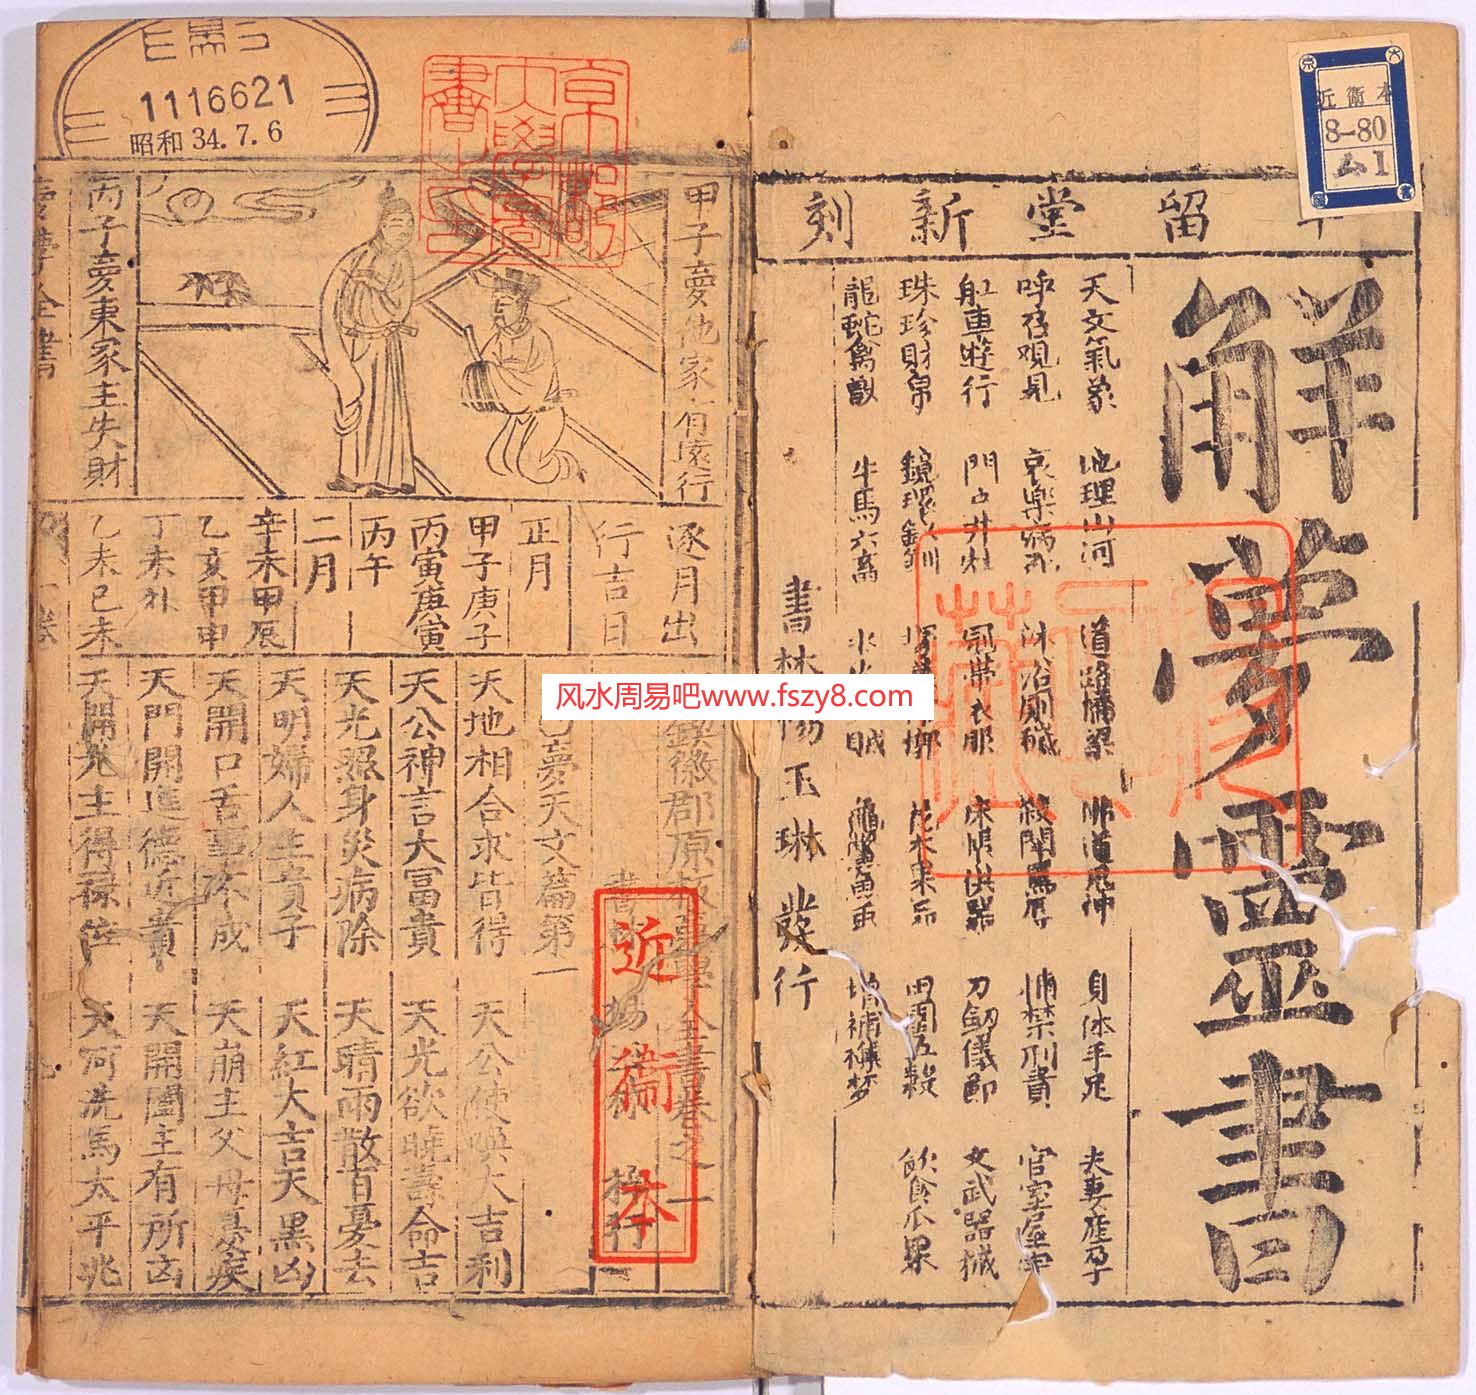 近衛本
8-80
ム1
留堂新刻
解夢靈書
天文氣象 地理山河 道路橋梁 佛道鬼神 身体手足 夫妻產孕
呼召观見 哀樂病死 沐浴廁穢 殺鬪 捕禁刑責 官室屋宇
舡車遊行 門戶井灶 冠帶衣服 床帳 刀劒儀節 文武器械
珠珍財帛 鏡環釵釧 花木果品 田園五穀 飲食瓜果
龍蛇禽獸 牛馬六畜 增補
書林楊玉琳發行
1116621
昭和34.7.6
京都大學圖書之
甲子夢他家有遠行
丙子夢東家主失財
夢學全書
逐月出
行吉日
正月
甲子庚子
丙寅庚寅
丙午
二月
辛未甲辰
乙亥甲申
丁未
乙未己未
鍥徽郡原板夢學全書卷之一
書林 楊 梓行
近衛本
夢天文篇第一
天地相合求皆得 天公使喚大吉利
天公神言大冨貴 天光欲曉壽命吉
天光照身災病除 天晴雨散百憂去
天明婦人生貴子 天紅大吉天黑凶
天開口舌事不成 天崩主父母喪疾
天門開進德近貴 天開闔主有所凶
天開光主得祿位 天河洗馬太平兆
风水周易吧www.fszy8.com